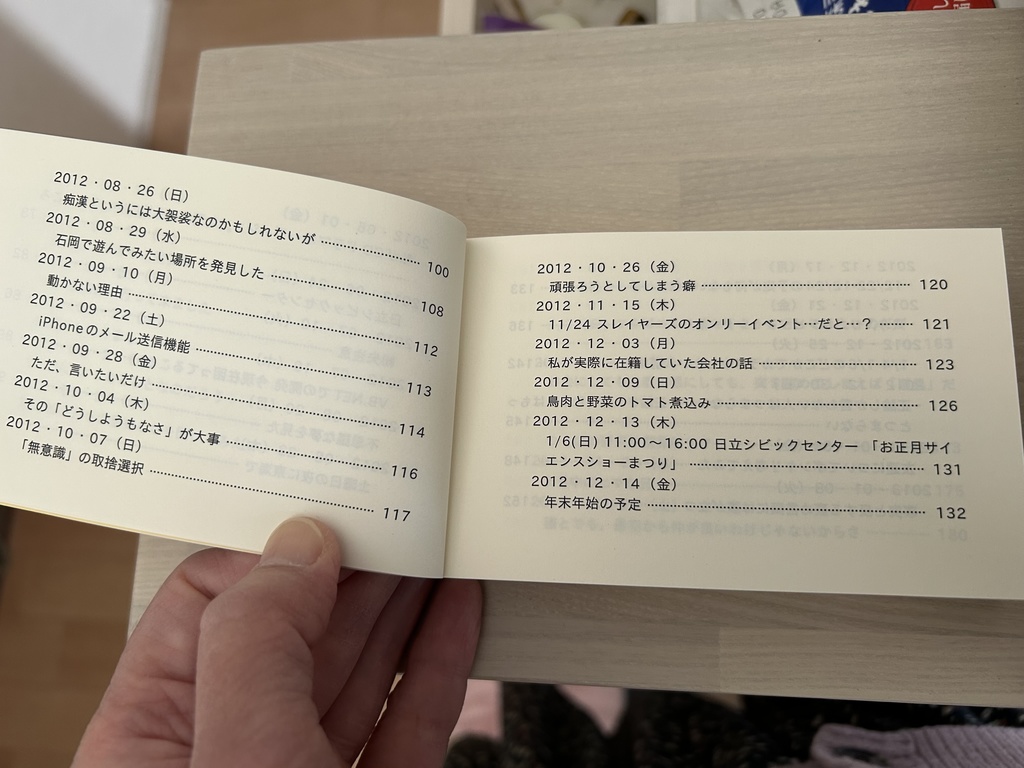 2012・08・26（日）
痴漢というには大袈裟なのかもしれないが 100
2012・08・29（水）
石岡で遊んでみたい場所を発見した 108
2012・09・10（月）
動かない理由 112
2012・09・22（土）
iPhoneのメール送信機能 113
2012・09・28（金）
ただ、言いたいだけ 114
2012・10・04（木）
その「どうしようもなさ」が大事 116
2012・10・07（日）
「無意識」の取捨選択 117
2012・10・26（金）
頑張ろうとしてしまう癖 120
2012・11・15（木）
11/24 スレイヤーズのオンリーイベント…だと…？ 121
2012・12・03（月）
私が実際に在籍していた会社の話 123
2012・12・09（日）
鳥肉と野菜のトマト煮込み 126
2012・12・13（木）
1/6(日) 11:00～16:00 日立シビックセンター 「お正月サイ
エンスショーまつり」 131
2012・12・14（金）
年末年始の予定 132